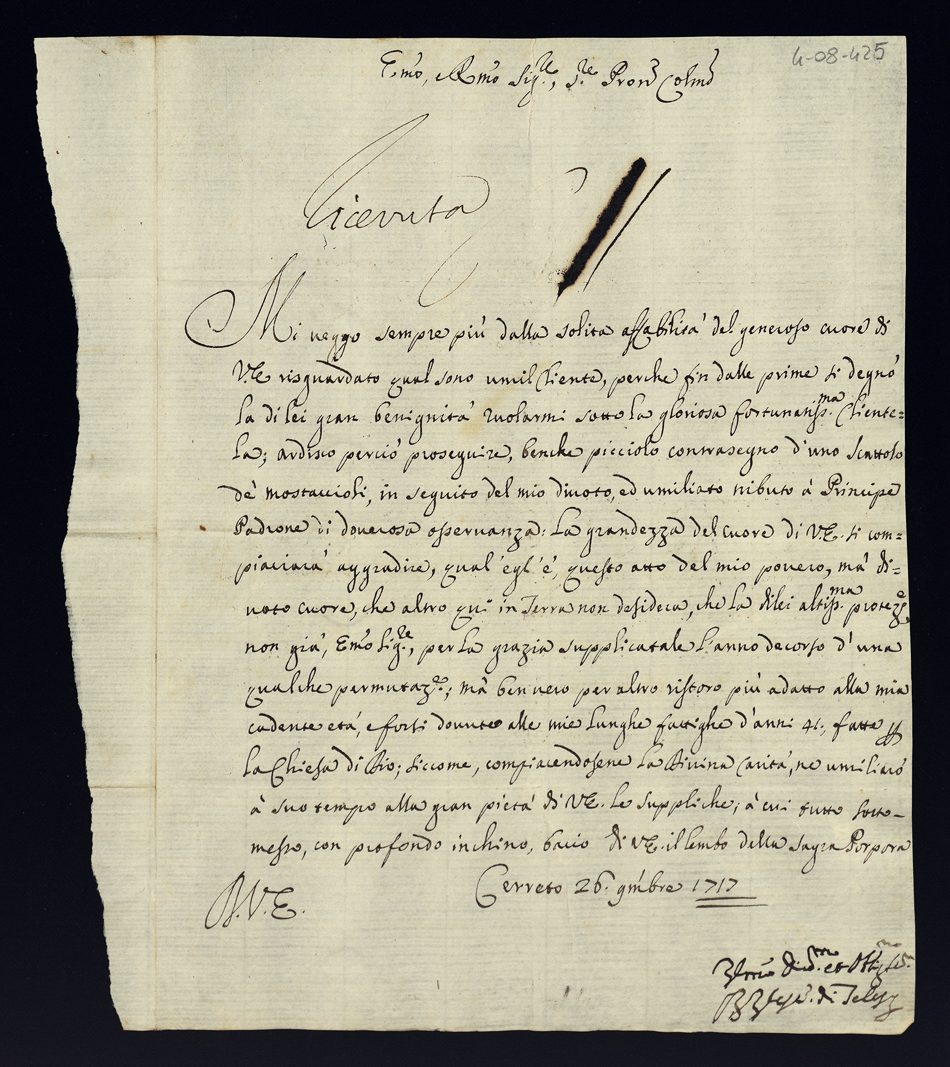 4-08-425
Emo, e Rmo Sig.re, S.re Pron Colmo
Ricevuta
Mi veggo sempre più dalla solita affabilità del generoso cuore di
V.E risguardato qual sono umil Cliente, perche fin dalle prime si degnò
la di lei gran benignità ruolarmi sotto la gloriosa fortunatiss.ma Cliente=
la; ardisco perciò proseguire, benche picciolo contrasegno d'uno scattolo
dè mostaccioli, in seguito del mio divoto, ed umiliato tributo à Principe
Padrone di doverosa osservanza: La grandezza del cuore di V.E. si com=
piacerà aggradire, qual'egl'è, questo atto del mio povero, mà di=
voto cuore, che altro quì in Terra non desidera, che la di lei altiss.ma protez.e
non già, Emo Sig.re, per la grazia supplicatale l'anno decorso d'una
qualche permutaz.e; mà ben vero per altro ristoro più adatto alla mia
cadente età, e forsi dovuto alle mie lunghe fattighe d'anni 41, fatte
la Chiesa di Dio; siccome, compiacendosene la Divina Carità, ne umiliarò
à suo tempo alla gran pietà di V.E. le suppliche; à cui tutto sotto-
messo, con profondo inchino, bacio di V.E. il lembo della sagra Porpora
D.V.E. Cerreto 26. 9mbre 1717
di Teles